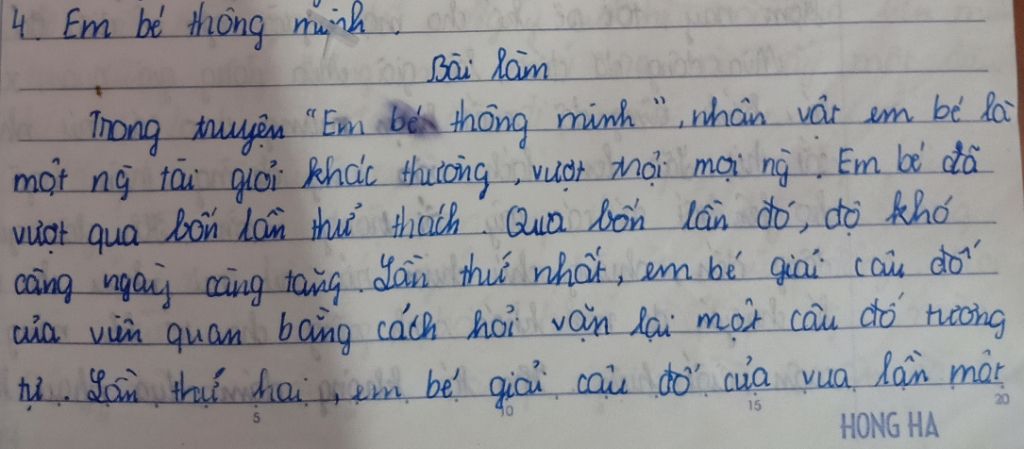 4. Em bé thông minh.
Bài làm
Trong truyện "Em bé thông minh", nhân vật em bé là
một ng̃ tài giỏi khác thường, vượt mọi ng̃. Em bé đã
vượt qua bốn lần thử thách. Qua bốn lần đó, độ khó
càng ngày càng tăng. Lần thứ nhất, em bé giải câu đố
của viên quan bằng cách hỏi vặn lại một câu đố tương
tự. Lần thứ hai, em bé giải câu đố của vua. Lần một
5 10 15 20
HONG HA